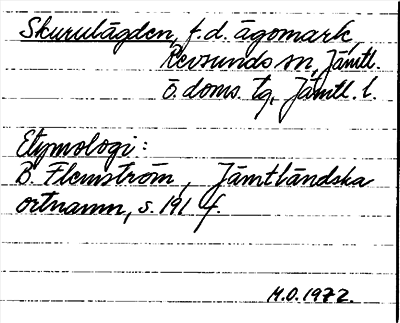 Skurulägden, f.d. ägomark,
Revsunds sn, Jämtl.
ö. doms. tg, Jämtl. l.
Etymologi:
B. Flemström, Jämtländska
ortnamn, s. 191 f.
M.O. 1972.